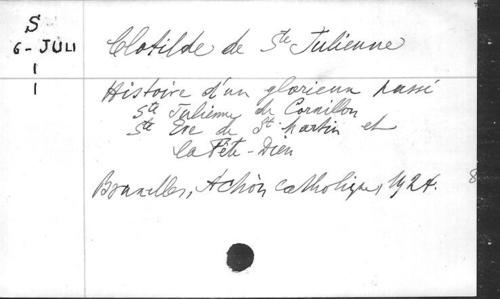 S
6-JULI
1
1
Clotilde de Ste Julienne
Histoire d'un glorieux passé
Ste Julienne de Cornillon
Ste Eve de St Martin et
la Fête-Dieu
Bruxelles, Action Catholique, 1924.
8